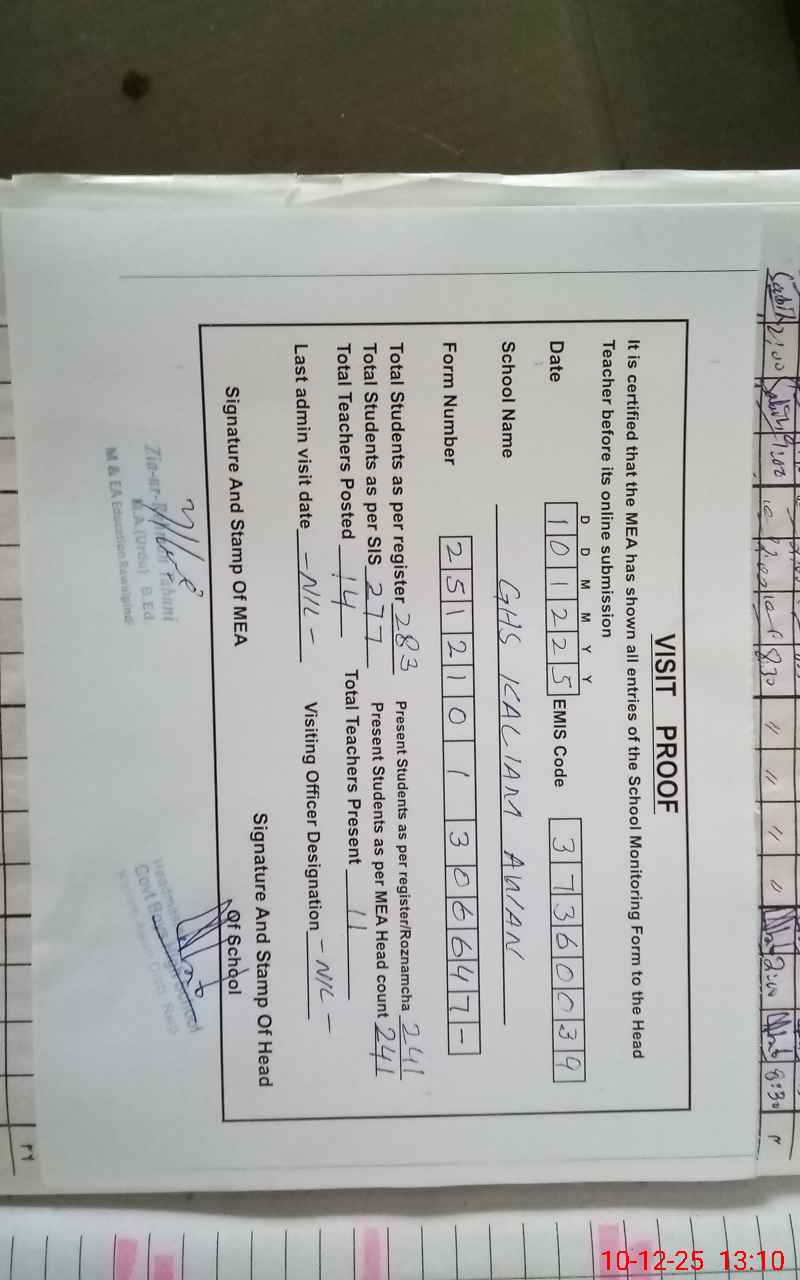 VISIT PROOF
It is certified that the MEA has shown all entries of the School Monitoring Form to the Head
Teacher before its online submission
D D M M Y Y
Date 1 0 1 2 2 5 EMIS Code 3 7 3 6 0 0 3 9
School Name GHS KALIAM AWAN
Form Number 2 5 1 2 1 0 1 3 0 6 6 4 7 -
Total Students as per register 283 Present Students as per register/Roznamcha 241
Total Students as per SIS 277 Present Students as per MEA Head count 241
Total Teachers Posted 14 Total Teachers Present 11
Last admin visit date -NIL- Visiting Officer Designation -NIL-
Signature And Stamp Of MEA
Signature And Stamp Of Head
Of School
M.A (Urdu) B.Ed
M & EA Education Rawalpindi
2:00
8:30
" " " "
2:00
8:30
10-12-25 13:10